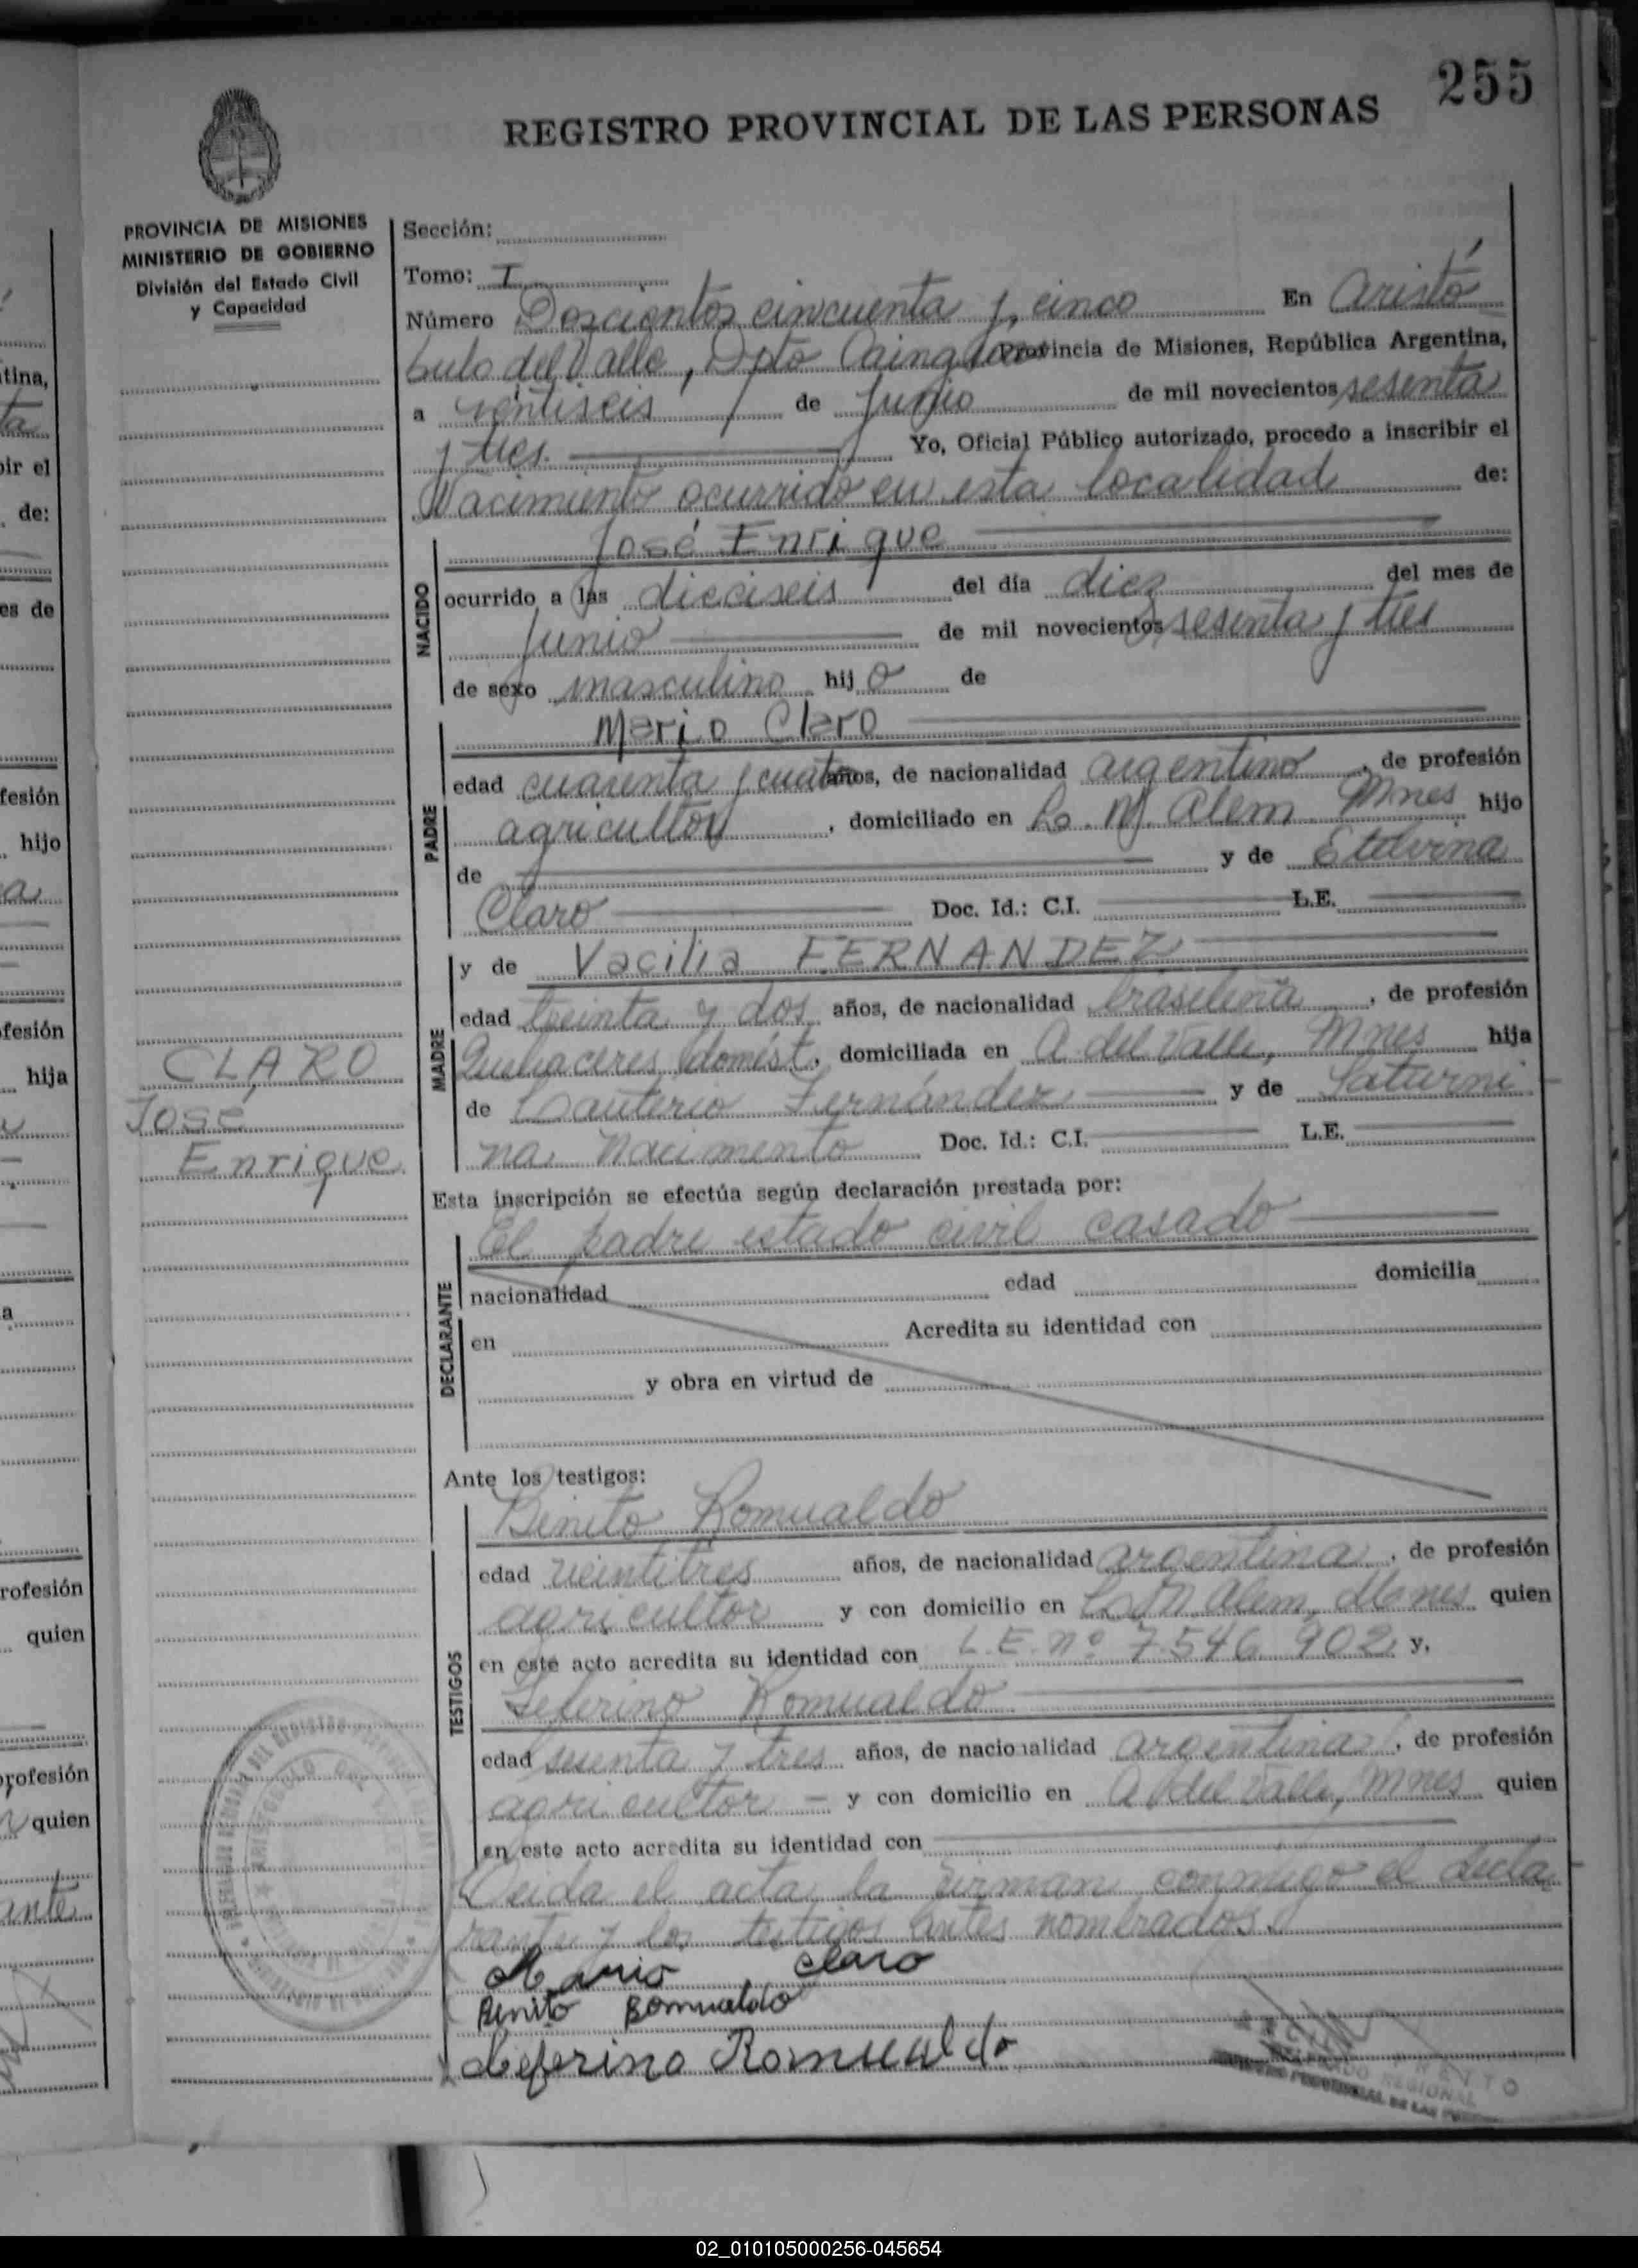 255
REGISTRO PROVINCIAL DE LAS PERSONAS
PROVINCIA DE MISIONES
MINISTERIO DE GOBIERNO
División del Estado Civil
y Capacidad
Sección:
Tomo: I
Número Doscientos cincuenta y cinco En Aristó
bulo del Valle, Dpto Cainguas Provincia de Misiones, República Argentina,
a ventiseis de Junio de mil novecientos sesenta
y tres. Yo, Oficial Público autorizado, procedo a inscribir el
Nacimiento ocurrido en esta localidad de:
NACIDO
José Enrique
ocurrido a las dieciseis del día diez del mes de
Junio de mil novecientos sesenta y tres
de sexo masculino hijo de
PADRE
Mario Claro
edad cuarenta y cuatro años, de nacionalidad argentino, de profesión
agricultor, domiciliado en L. N. Alem Mnes hijo
de y de Etelvina
Claro Doc. Id.: C.I. L.E.
MADRE
y de Vacilia FERNANDEZ
edad treinta y dos años, de nacionalidad brasileña, de profesión
Quehaceres domést., domiciliada en A del Valle, Mnes hija
de Lauterio Fernández y de Saturni
na Nacimento Doc. Id.: C.I. L.E.
CLARO
José
Enrique
Esta inscripción se efectúa según declaración prestada por:
DECLARANTE
El padre estado civil casado
nacionalidad edad domicilia
en Acredita su identidad con
y obra en virtud de
Ante los testigos:
TESTIGOS
Benito Romualdo
edad veintitres años, de nacionalidad argentina, de profesión
agricultor y con domicilio en L. N. Alem, Mnes quien
en este acto acredita su identidad con L.E. nº 7.546.902 y,
Seferino Romualdo
edad sesenta y tres años, de nacionalidad argentina, de profesión
agricultor y con domicilio en A. del Valle, Mnes quien
en este acto acredita su identidad con
Leida el acta la firman conmigo el decla
rante y los testigos antes nombrados.
Mario Claro
Benito Romualdo
Ceferino Romualdo
02_010105000256-045654